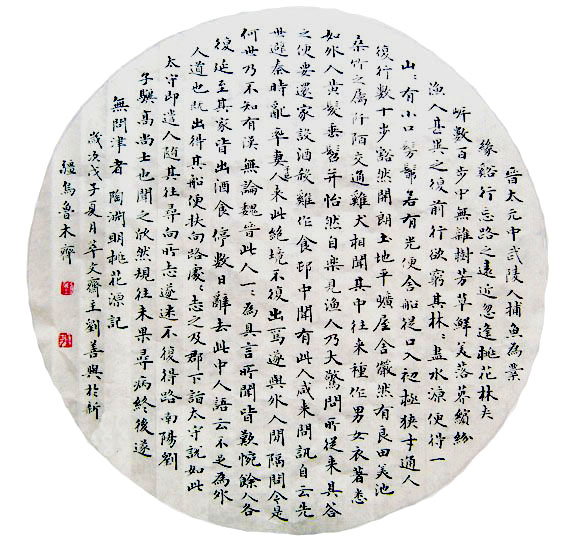 晉太元中武陵人捕魚為業
緣谿行忘路之遠近忽逢桃花林夾
岍數百步中無雜樹芳草鮮美落英繽紛
漁人甚異之復前行欲窮其林〻盡水源便得一
山〻有小口髣髴若有光便舍船從口入初極狹才通人
復行數十步豁然開朗土地平曠屋舍儼然有良田美池
桑竹之屬阡陌交通雞犬相聞其中往來種作男女衣著悉
如外人黃髮垂髫并怡然自樂見漁人乃大驚問所從來具答
之便要還家設酒殺雞作食邨中聞有此人咸來問訊自云先
世避秦時亂率妻人來此絕境不復出焉遂與外人閒隔問今是
何世乃不知有漢無論魏晉此人一〻為具言所聞皆歎惋餘人各
復延至其家皆出酒食停數日辭去此中人語云不足為外
人道也既出得其船便扶向路處〻志之及郡下詣太守說如此
太守即遣人隨其往尋向所志遂迷不復得路南陽劉
子驥高尚士也聞之欣然規往未果尋病終後遂
無問津者 陶淵明桃花源記
歲次戊子夏月萃文齋主劉善興於新
疆烏魯木齊